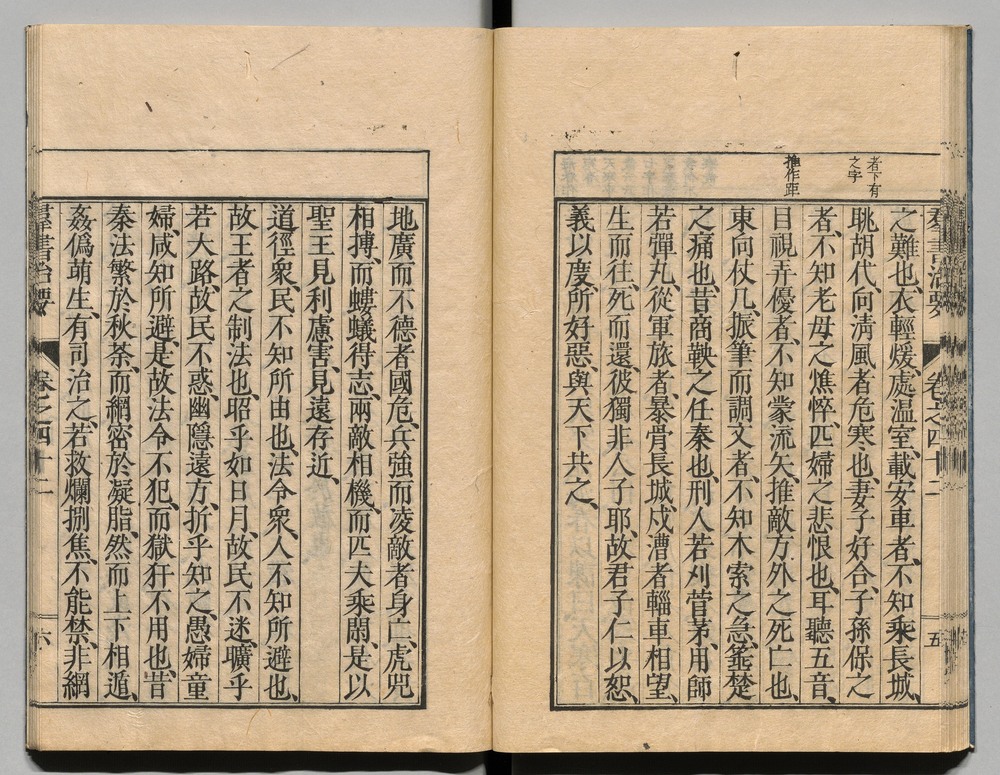 羣書治要
卷之四十二
五
者下有
之字
推作距
之難也、衣輕煖、處温室、載安車者、不知乘長城、
眺胡代、向淸風者危寒也、妻子好合、子孫保之
者、不知老母之憔悴、匹婦之悲恨也、耳聽五音、
目視弄優者、不知蒙流矢、推敵方外之死亡也、
東向仗几、振筆而調文者、不知木索之急、箠楚
之痛也、昔商鞅之任秦也、刑人若刈菅茅、用師
若彈丸、從軍旅者、暴骨長城、戍漕者、輜車相望、
生而往、死而還、彼獨非人子耶、故君子仁以恕、
義以度、所好惡、與天下共之、
地廣而不德者國危、兵強而凌敵者身亡、虎兕
相搏、而螻蟻得志、兩敵相機、而匹夫乘閑、是以
聖王見利慮害、見遠存近、
道徑衆、民不知所由也、法令衆、人不知所避也、
故王者之制法也、昭乎如日月、故民不迷、曠乎
若大路、故民不惑、幽隱遠方、折乎知之、愚婦童
婦、咸知所避、是故法令不犯、而獄犴不用也、昔
秦法繁於秋荼、而網密於凝脂、然而上下相遁、
姦僞萌生、有司治之、若救爛捌焦、不能禁、非網
羣書治要
卷之四十二
六